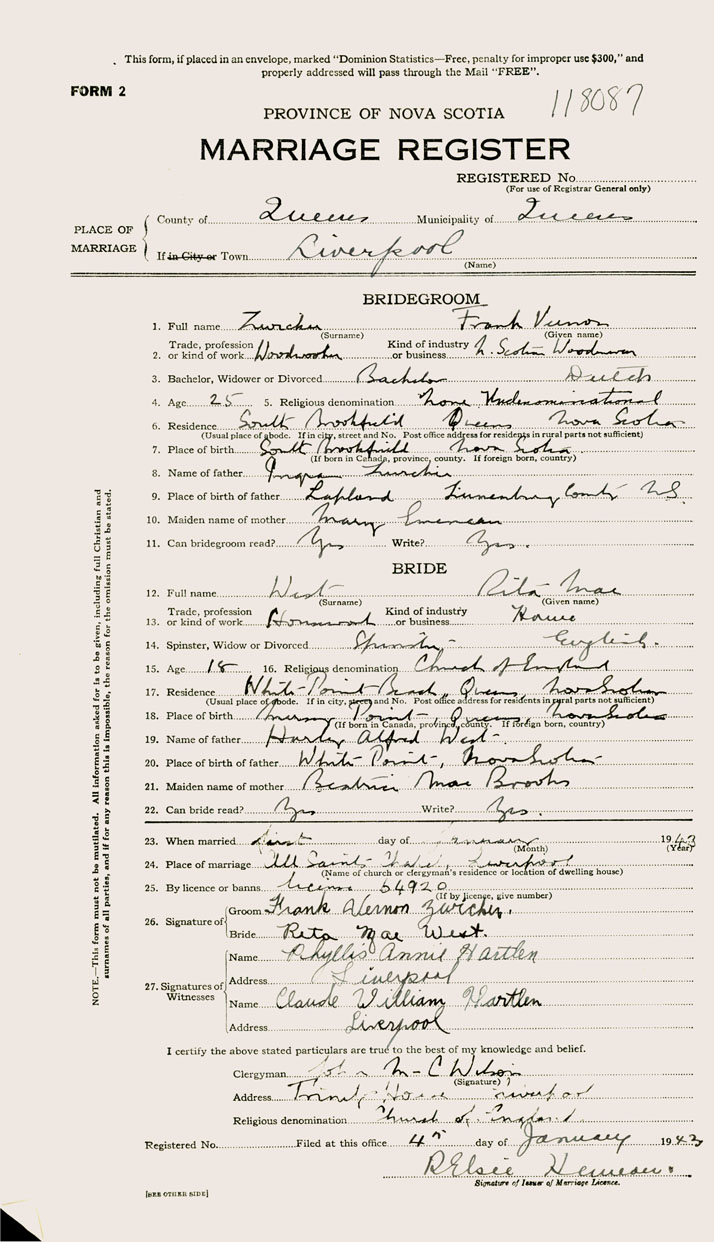 This form, if placed in an envelope, marked "Dominion Statistics—Free, penalty for improper use $300," and
properly addressed will pass through the Mail "FREE".
FORM 2
118087
PROVINCE OF NOVA SCOTIA
MARRIAGE REGISTER
REGISTERED No.
(For use of Registrar General only)
PLACE OF MARRIAGE
County of Queens Municipality of Queens
If in City or Town Liverpool
(Name)
BRIDEGROOM
1. Full name Zwicker Frank Vernon
(Surname) (Given name)
2. Trade, profession or kind of work Woodworker Kind of industry or business N. Scotia Woodworkers
3. Bachelor, Widower or Divorced Bachelor Dutch
4. Age 25 5. Religious denomination None Undenominational
6. Residence South Brookfield Queens Nova Scotia
(Usual place of abode. If in city, street and No. Post office address for residents in rural parts not sufficient)
7. Place of birth South Brookfield Nova Scotia
(If born in Canada, province, county. If foreign born, country)
8. Name of father Zwicker
9. Place of birth of father Lapland Lunenburg County N.S.
10. Maiden name of mother Mary
11. Can bridegroom read? Yes Write? Yes.
BRIDE
12. Full name West Rita Mae
(Surname) (Given name)
13. Trade, profession or kind of work Housework Kind of industry or business Home
14. Spinster, Widow or Divorced Spinster English.
15. Age 18 16. Religious denomination Church of England
17. Residence White Point Beach, Queens, Nova Scotia
(Usual place of abode. If in city, street and No. Post office address for residents in rural parts not sufficient)
18. Place of birth Mersey Point Queens, Nova Scotia
(If born in Canada, province, county. If foreign born, country)
19. Name of father Harley Alfred West
20. Place of birth of father White Point, Nova Scotia
21. Maiden name of mother Beatrice Mae Brooks
22. Can bride read? Yes Write? Yes.
23. When married first day of January 1943
(Month) (Year)
24. Place of marriage All Saints Liverpool
(Name of church or clergyman's residence or location of dwelling house)
25. By licence or banns license 54920
(If by licence, give number)
26. Signature of
Groom Frank Vernon Zwicker.
Bride Reta Mae West.
27. Signatures of Witnesses
Name Phyllis Annie Hartlen
Address Liverpool
Name Claude William Hartlen
Address Liverpool
I certify the above stated particulars are true to the best of my knowledge and belief.
Clergyman John M-C Wilson
(Signature)
Address Trinity House Liverpool
Religious denomination Church of England
Registered No. Filed at this office 4th day of January 1943
R Elsie
Signature of Issuer of Marriage Licence.
[SEE OTHER SIDE]
NOTE.—This form must not be mutilated. All information asked for is to be given, including full Christian and
surnames of all parties, and if for any reason this is impossible, the reason for the omission must be stated.